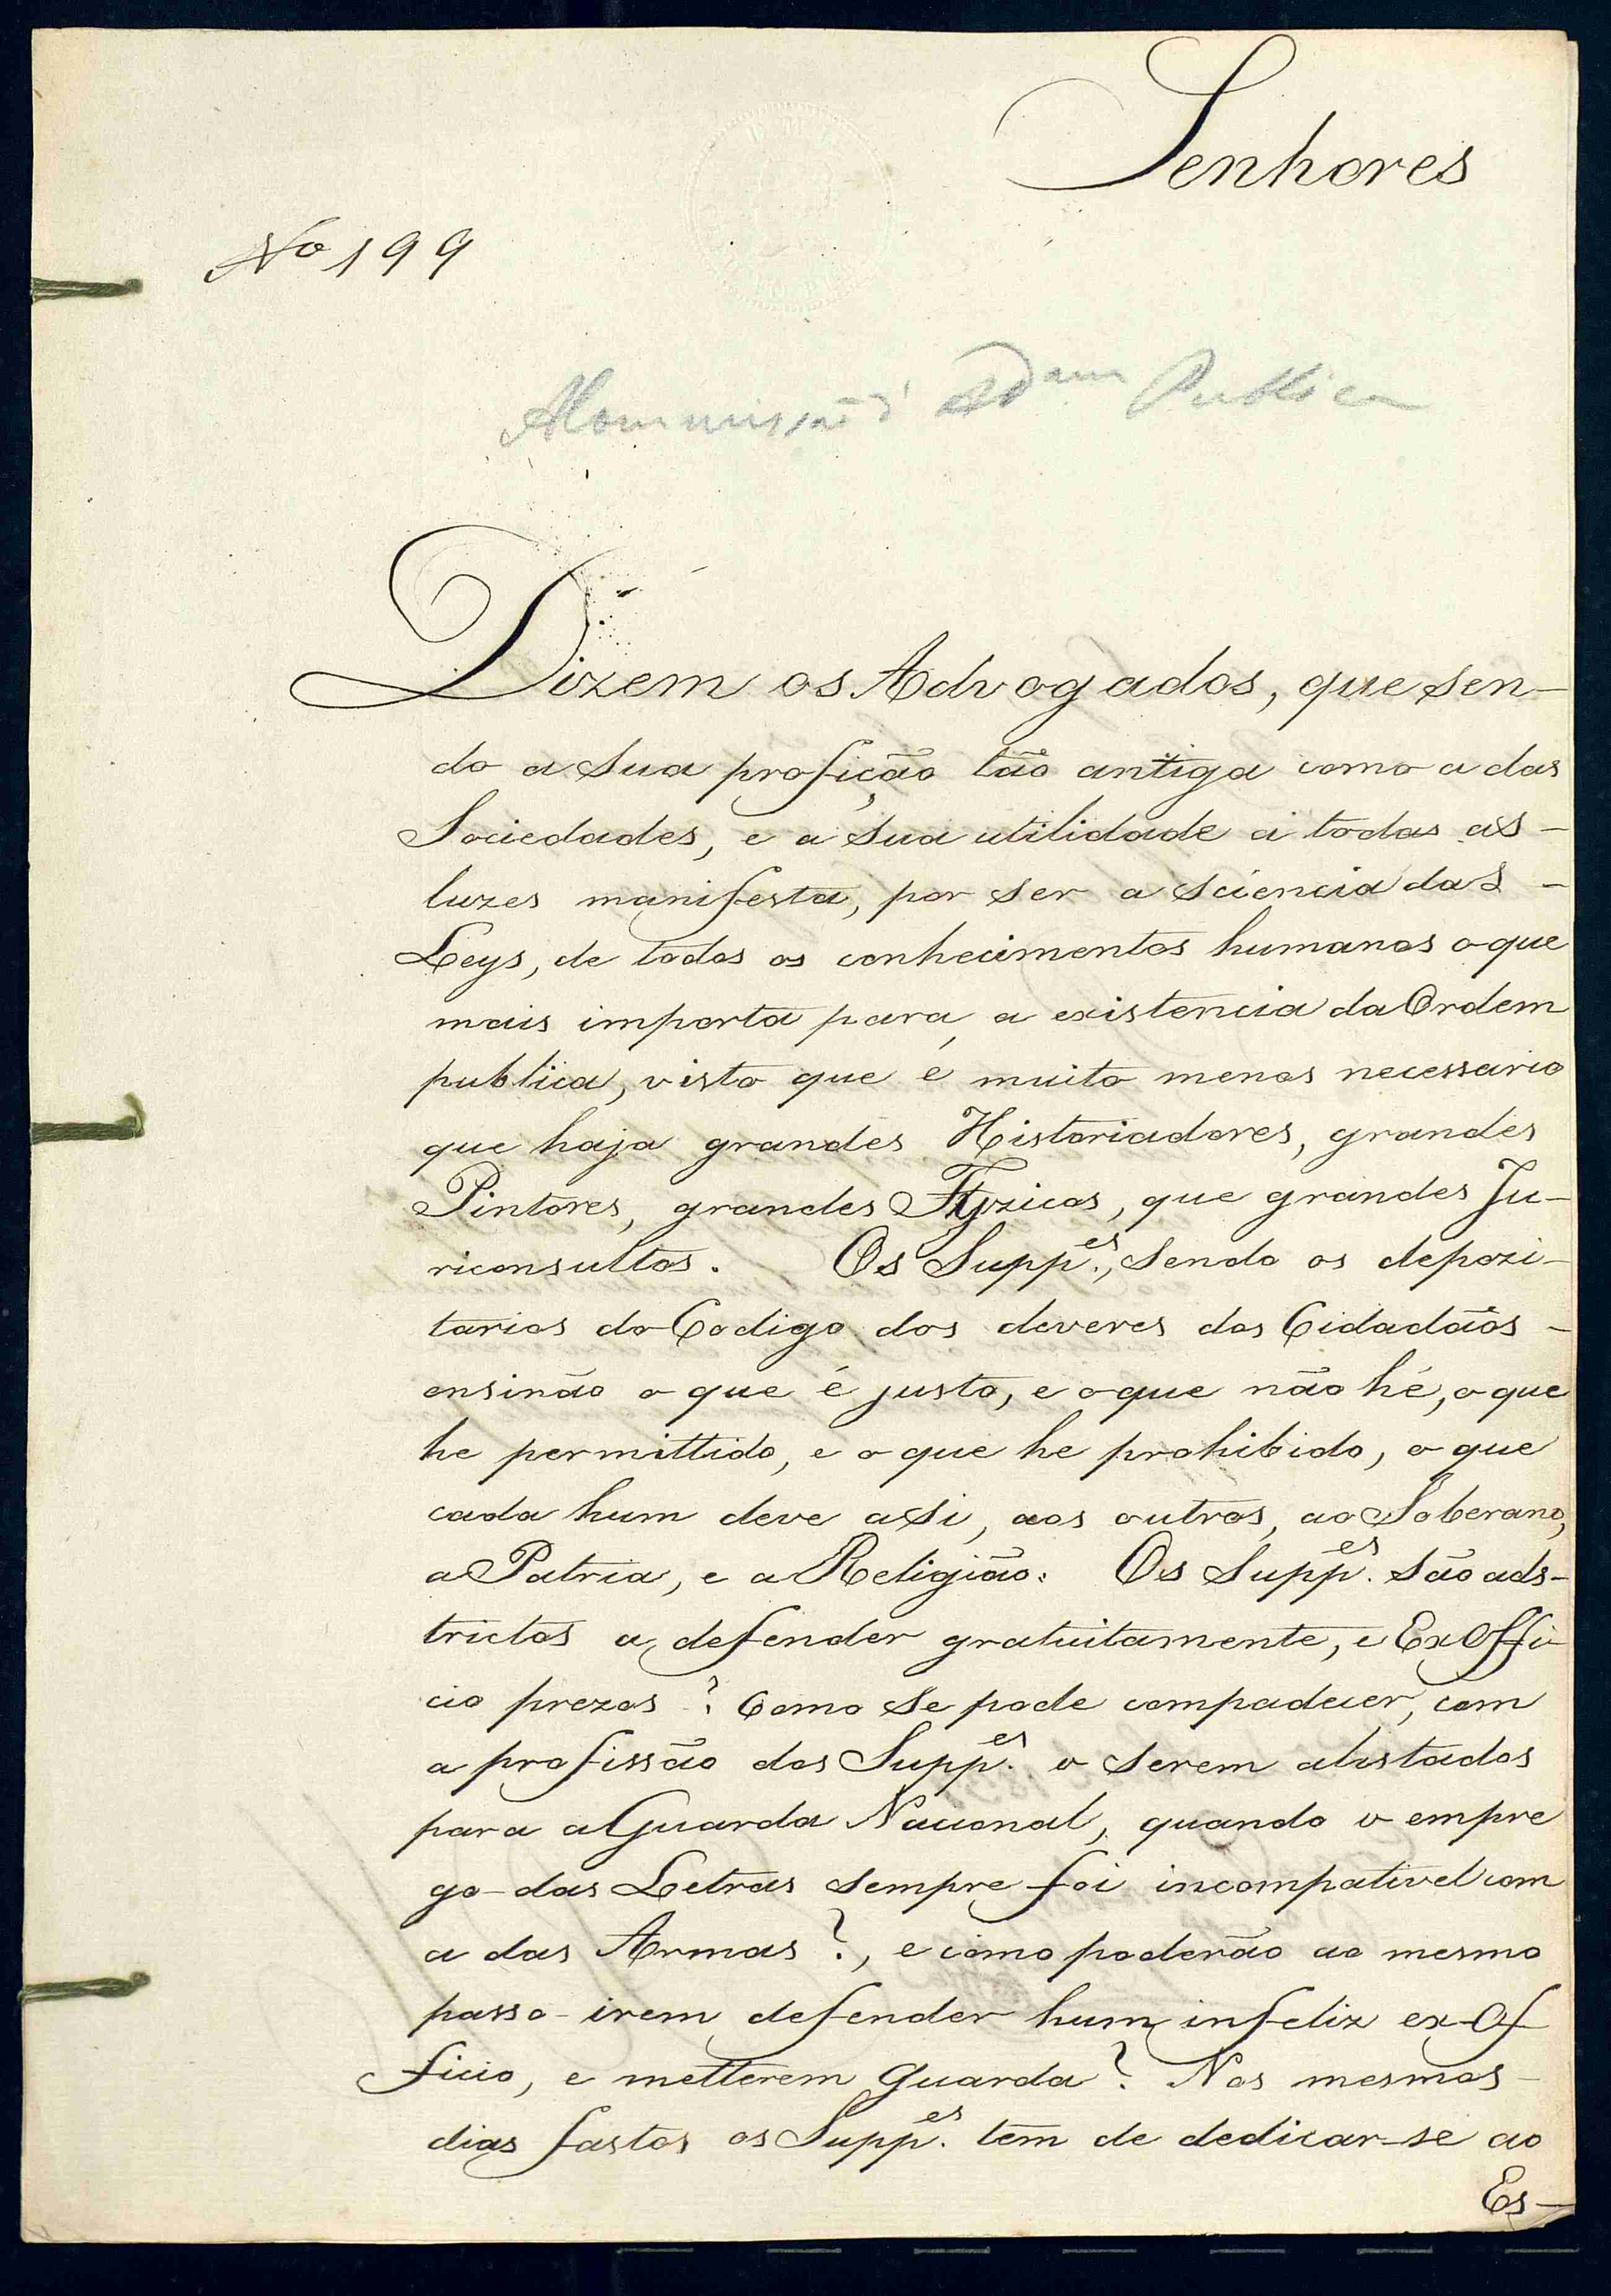 Senhores
No 199
Commissão d' Adam Publica
Dizem os Advogados, que sen-
do a sua profição tão antiga como a das
Sociedades, e a sua utilidade a todas as -
luzes manifesta, por ser a sciencia das -
Leys, de todos os conhecimentos humanos o que
mais importa para a existencia da Ordem
publica, visto que é muito menos necessario
que haja grandes Historiadores, grandes
Pintores, grandes Fyzicos, que grandes Ju-
riconsultos. Os Supp.es, sendo os depozi-
tarios do Codigo dos deveres dos Cidadãos -
ensinão o que é justo, e o que não hé, o que
he permittido, e o que he prohibido, o que
cada hum deve a si, aos outros, ao Soberano,
a Patria, e a Religião. Os Supp.es são ads-
trictos a defender gratuitamente, e Ex Offi-
cio prezos ? Como se pode compadecer, com
a profissão dos Supp.es o serem alistados
para a Guarda Nacional, quando o empre
go das Letras sempre foi incompativel com
a das Armas ?, e como poderão ao mesmo
passo irem defender hum infeliz ex-Of
ficio, e metterem Guarda ? Nos mesmos -
dias fastos os Supp.es tem de dedicar-se ao
Es-